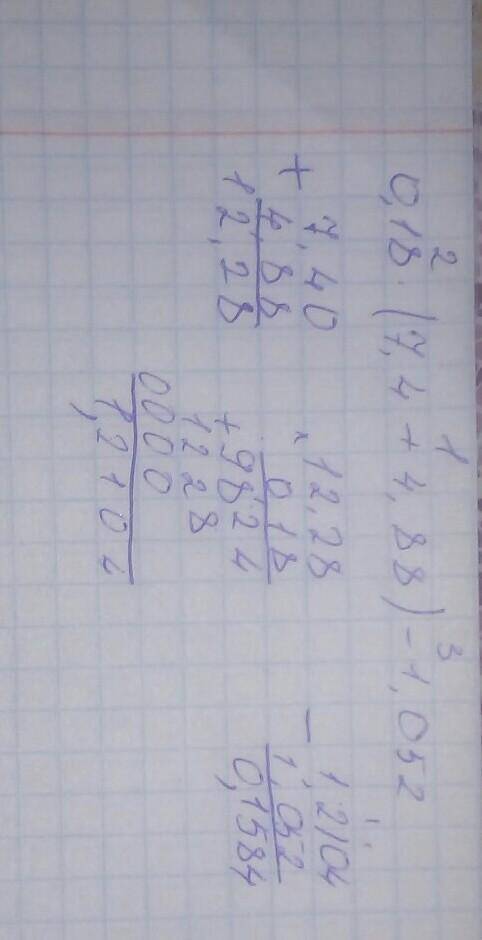 2 1 3
0,18 · (7,4 + 4,88) - 1,052
+ 7,40
4,88
12,28
× 12,28
0 18
+ 9824
1228
0000
1,2104
- 1,2104
1,052
0,1584